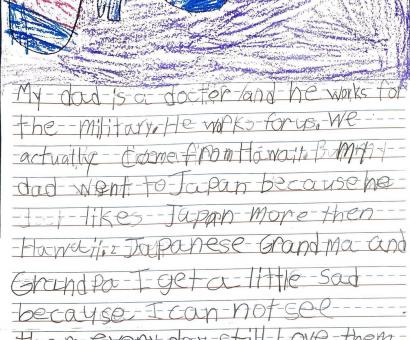 My dad is a doctor and he works for
the military. He works for us. We
actually come from Hawaii. my
dad went to Japan because he
likes Japan more then
Hawaii. Japanese Grandma and
Grandpa I get a little sad
because I can not see
every day still Love them